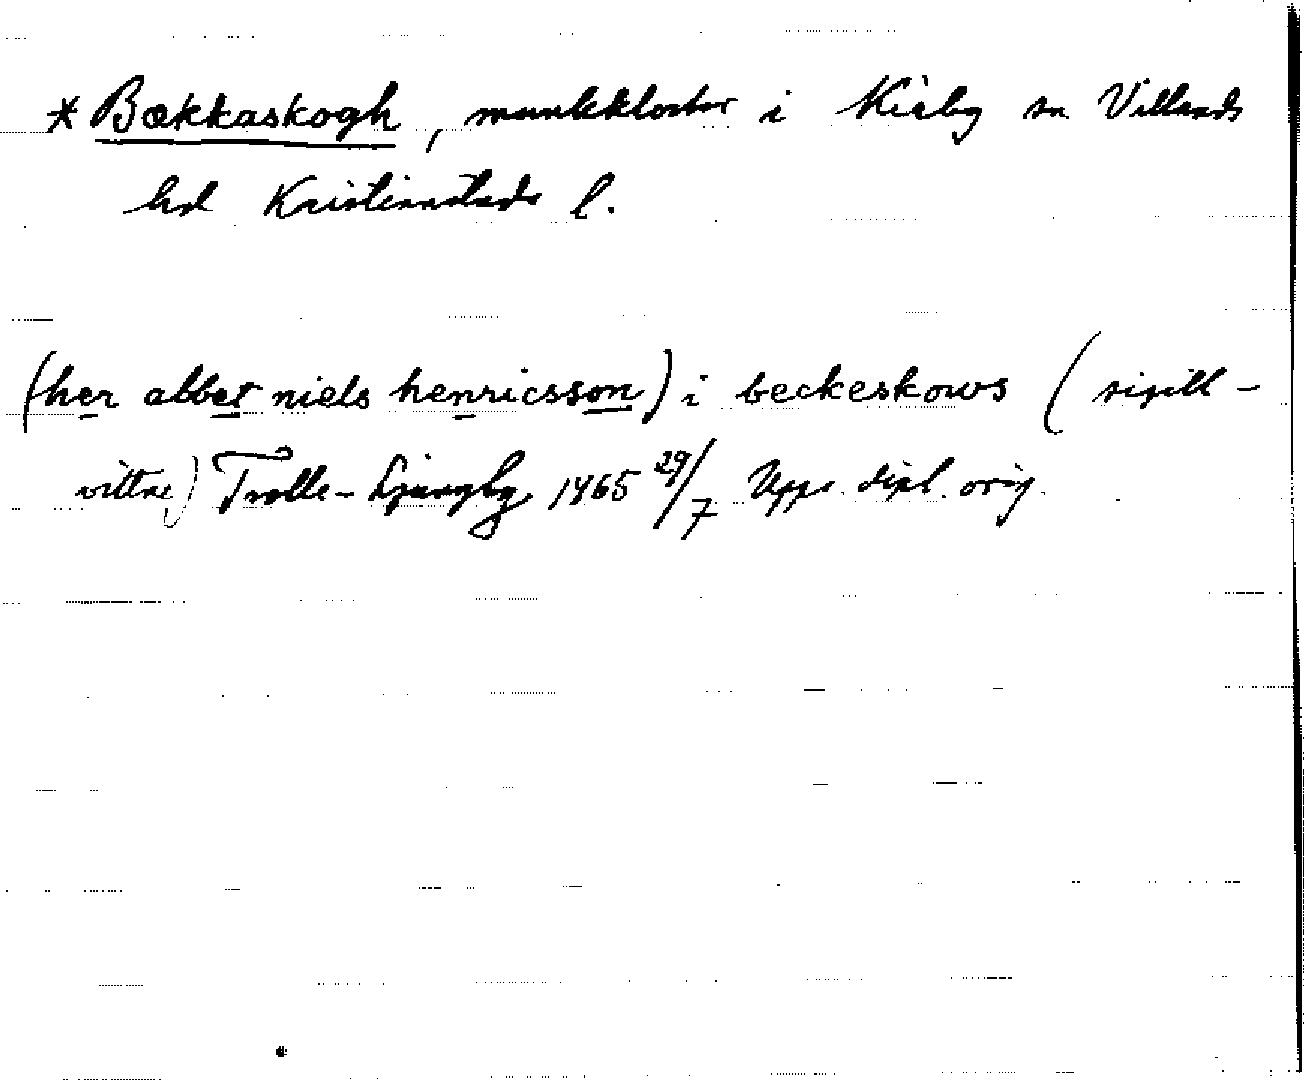 * Bækkaskogh, munkkloster i Kiaby sn Villands
hd Kristianstads l.
(her abbet niels henricsson) i beckeskows (sigill-
vittne) Trolle-Ljungby 1465 29/7 Upps. dipl. orig.